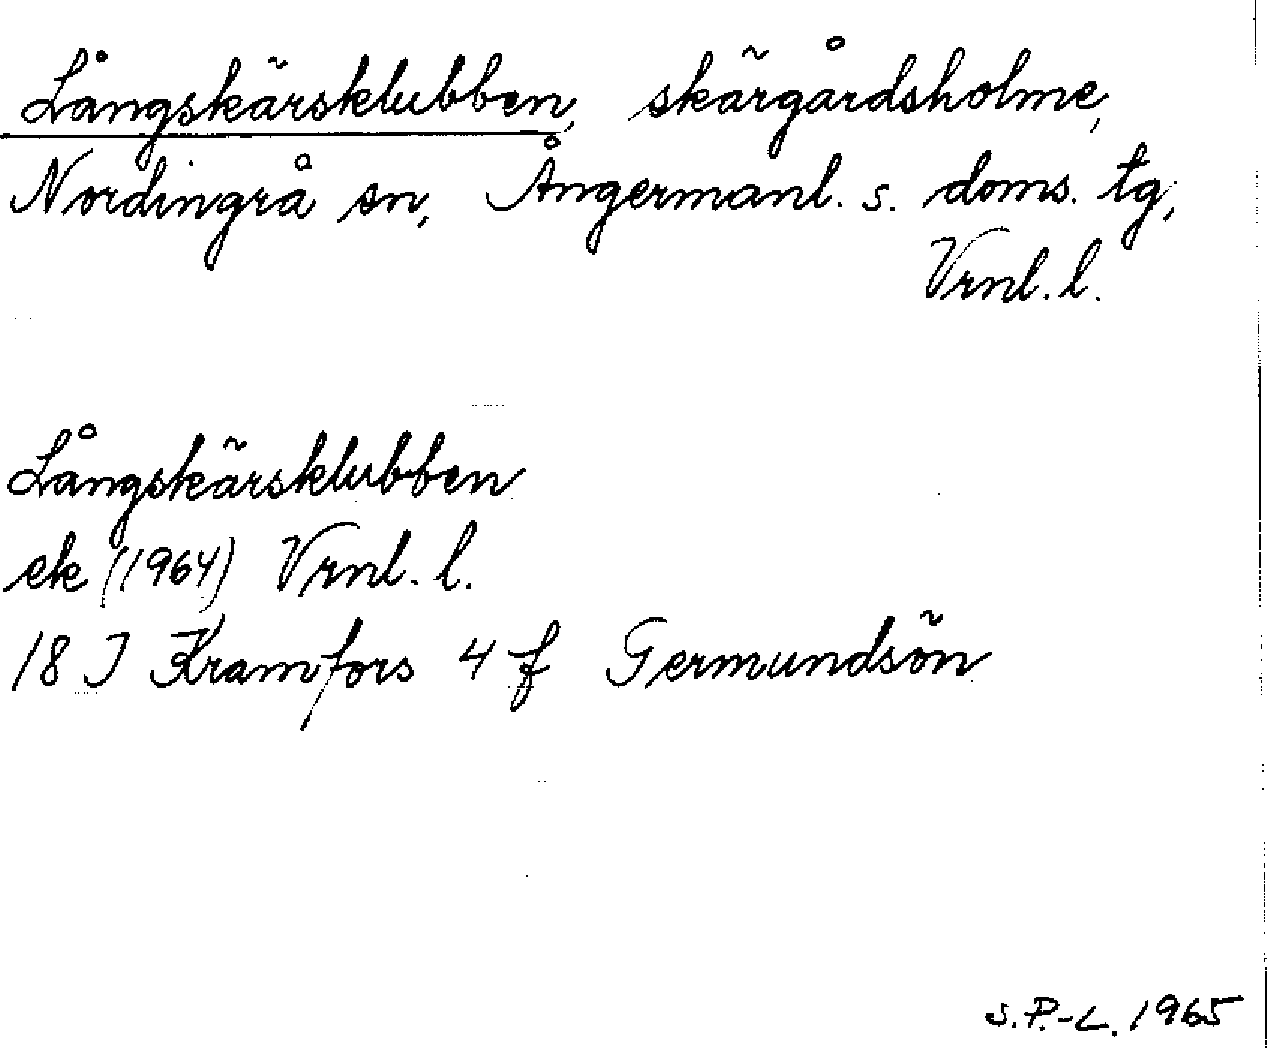 Långskärsklubben, skärgårdsholme,
Nordingrå sn, Ångermanl. s. doms. tg,
Vrnl. l.
Långskärsklubben
ek (1964) Vrnl. l.
18 I Kramfors 4 f Germundsön
S.P.-L. 1965